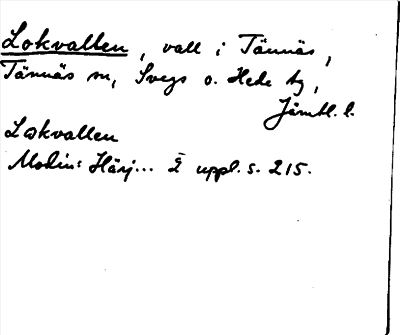 Lokvallen, vall i Tännäs,
Tännäs sn, Svegs o. Hede tg,
Jämtl. l.
Lokvallen
Modin: Härj... 2 uppl. s. 215.